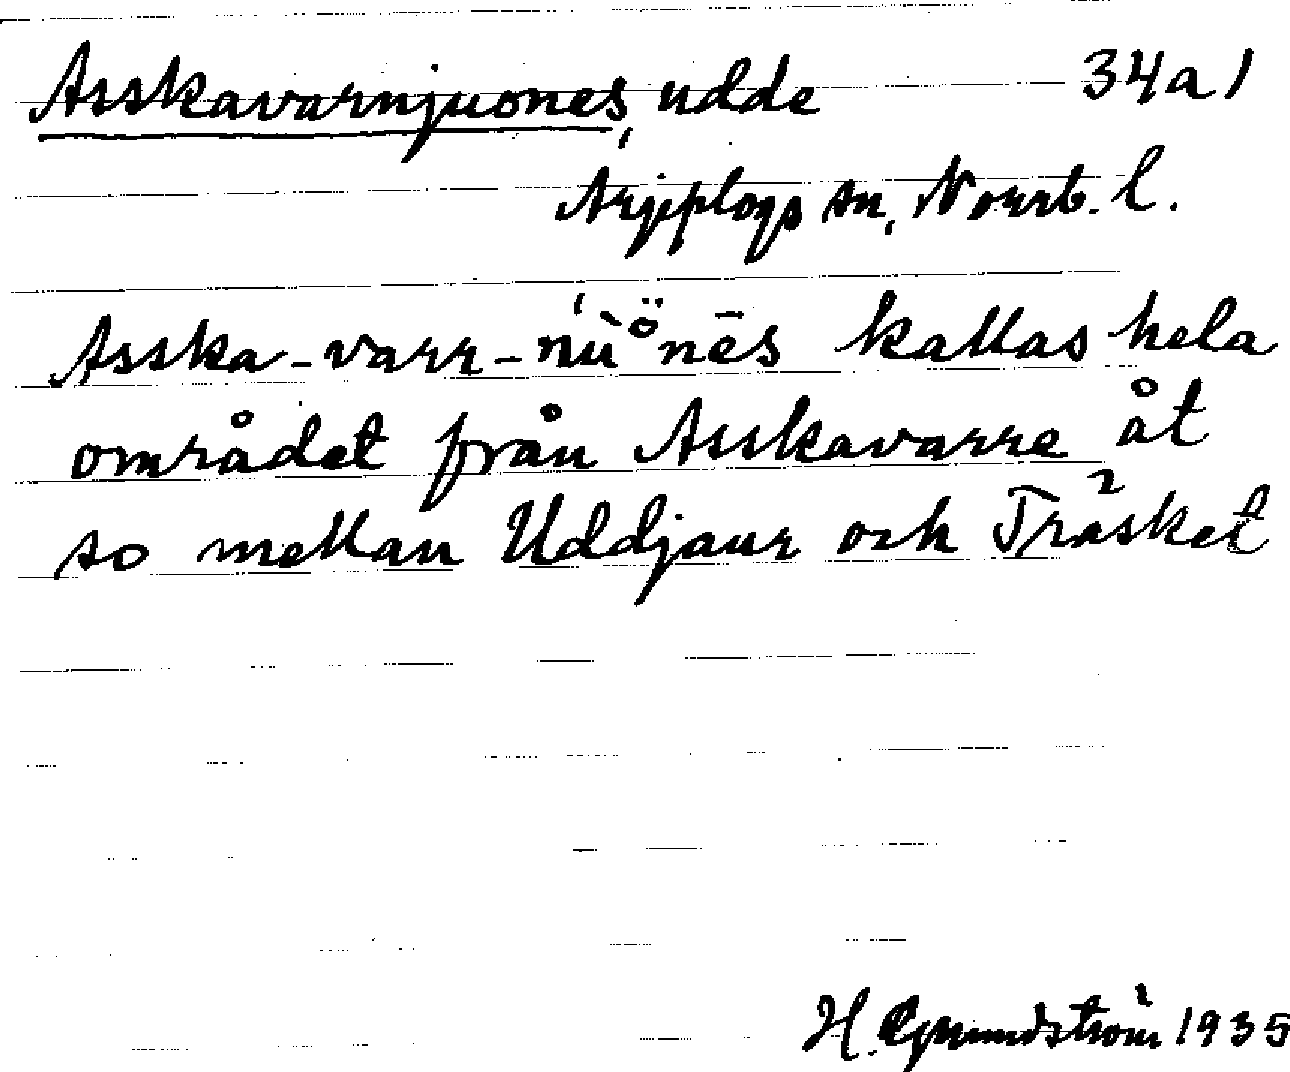 Asskavarnjuones, udde 34a1
Arjeplogs sn, Norrb. l.
Asska-varr-ńùönēs kallas hela
området från Asskavarre åt
so mellan Uddjaur och Träsket
H. Grundström 1935